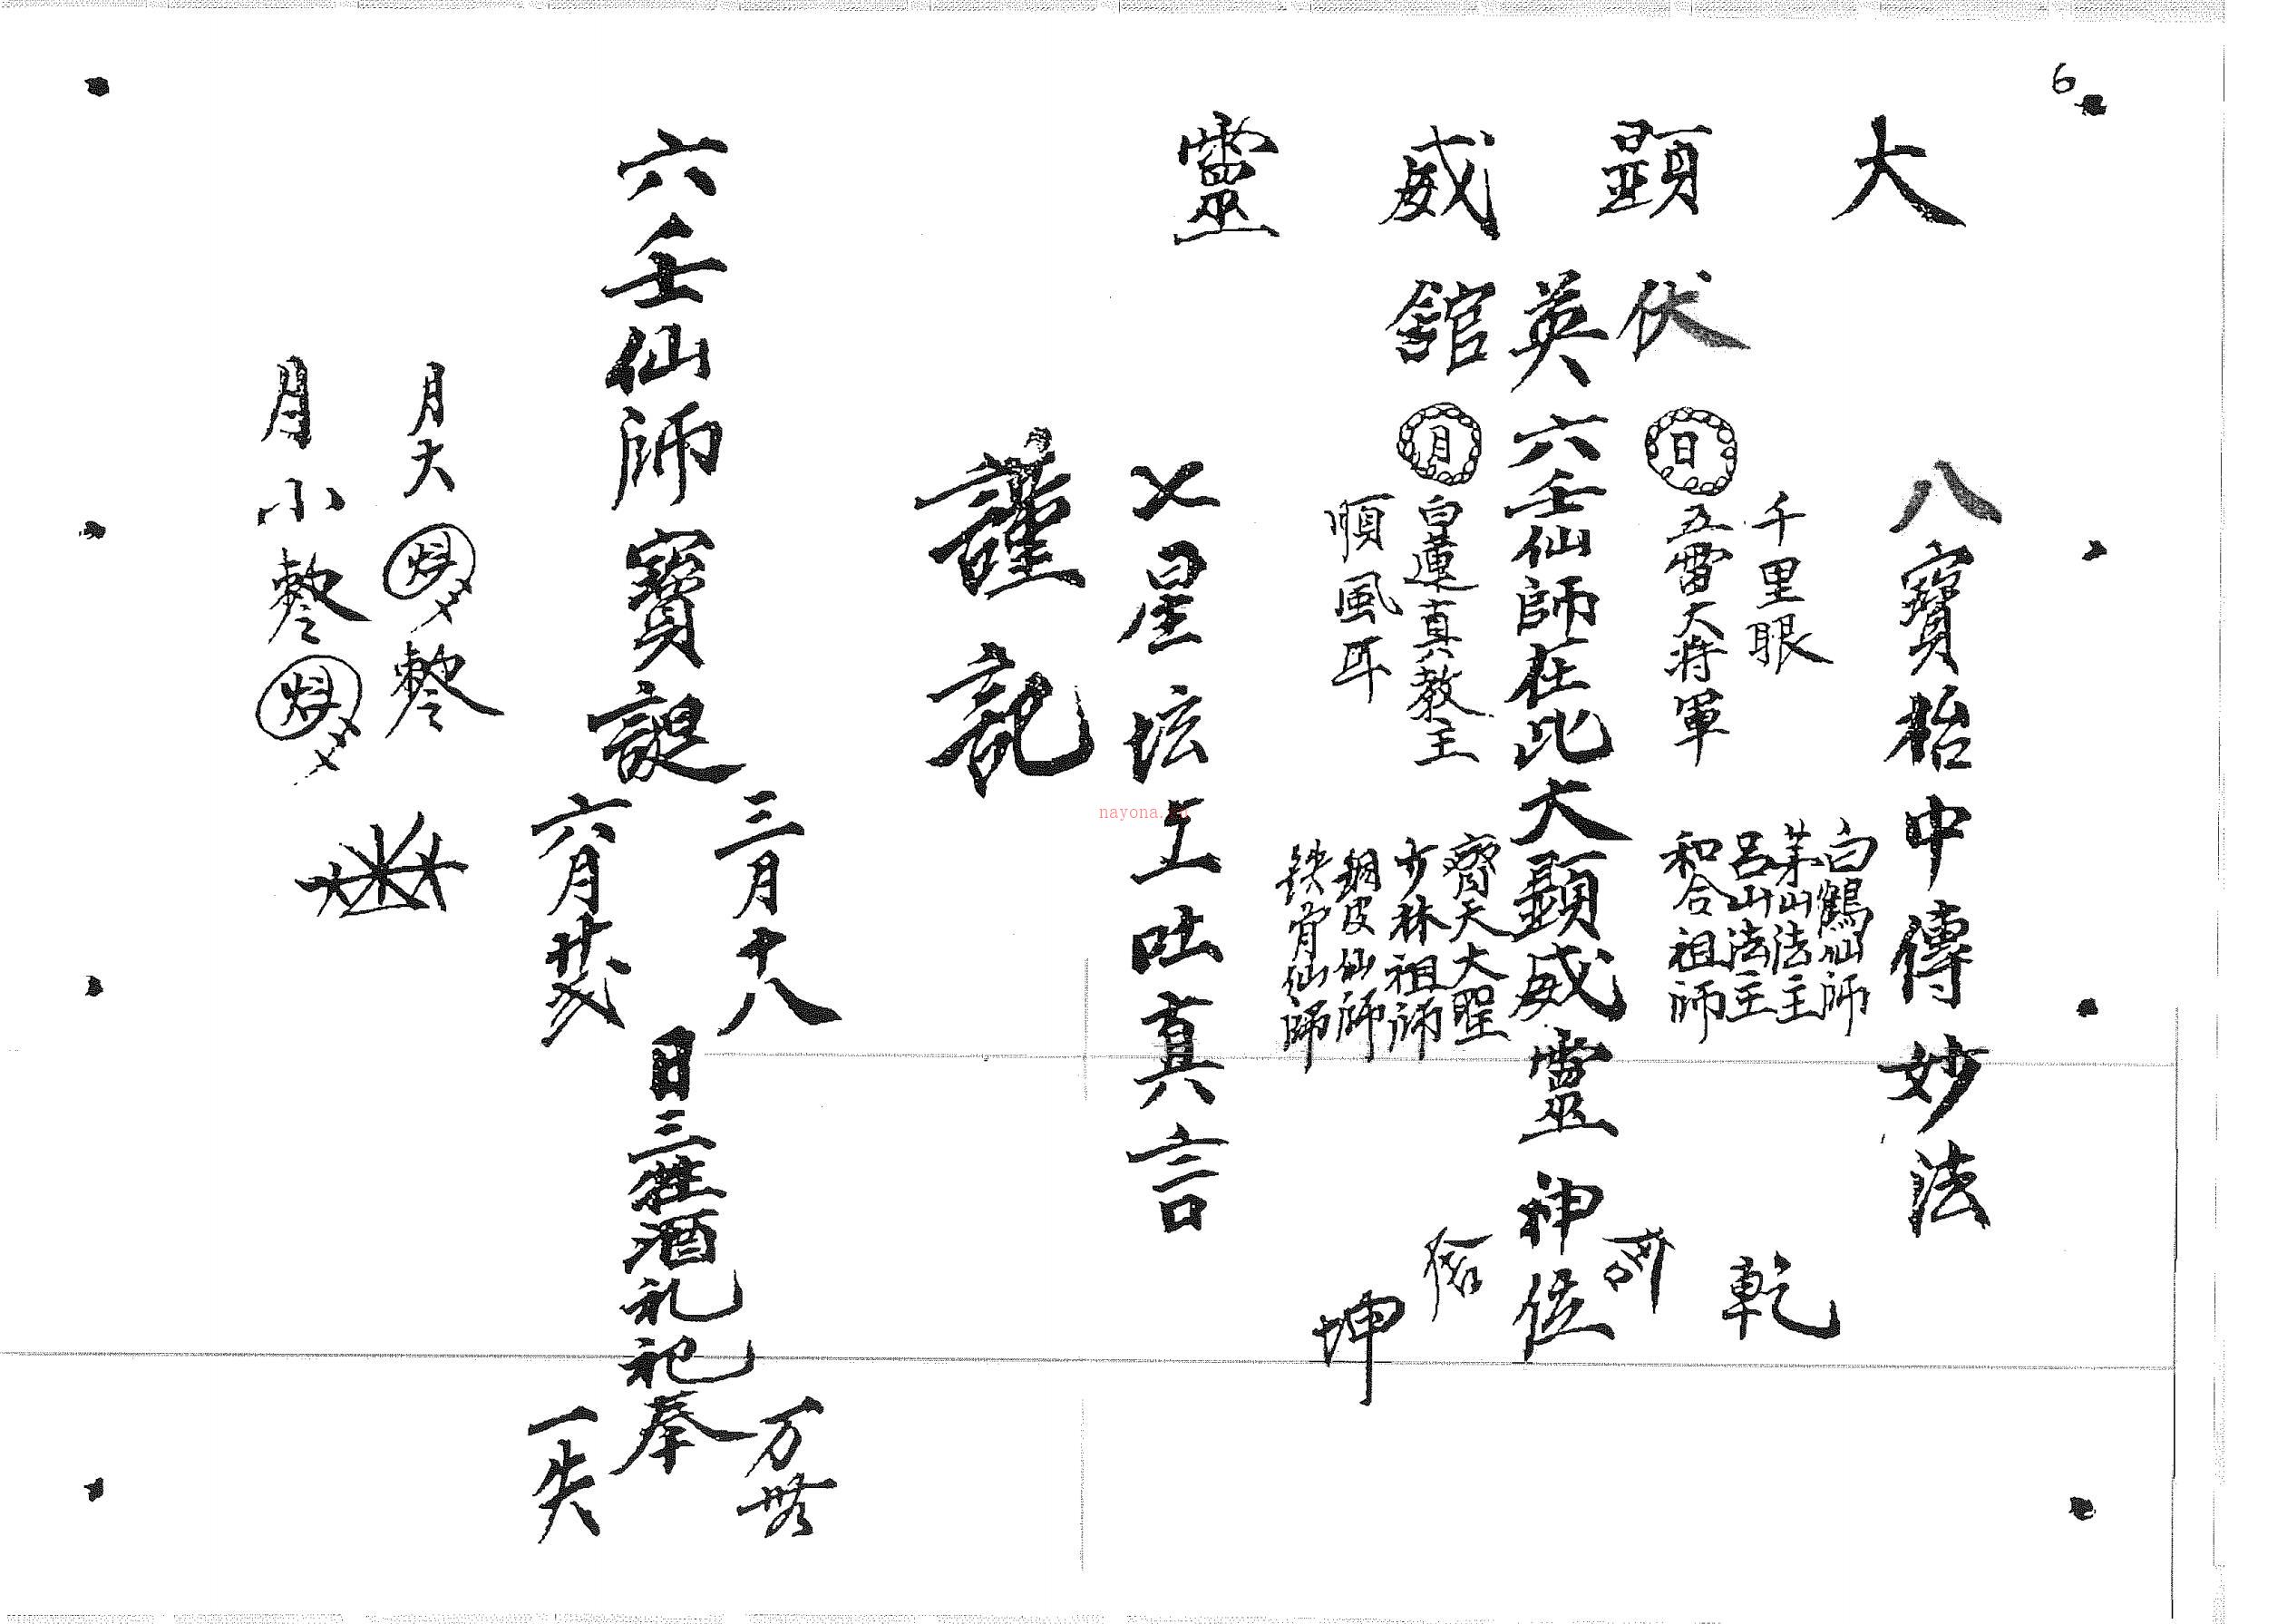 6
大顕威靈
八寶枱中傳妙法
伏英舘
日
月
千里眼
五雷大將軍
六壬仙師在此大顕威靈神位
白蓮真教主
順風耳
白鶴仙師
茅山法主
呂山法主
和合祖師
齊天大聖
少林祖師
銅皮仙師
鉄骨仙師
乾
坤
七星坛上吐真言
謹記
六壬仙師寶誕
三月十八
六月廿
日三牲酒礼祀奉
万
一失
月大
月小
nayona.cn